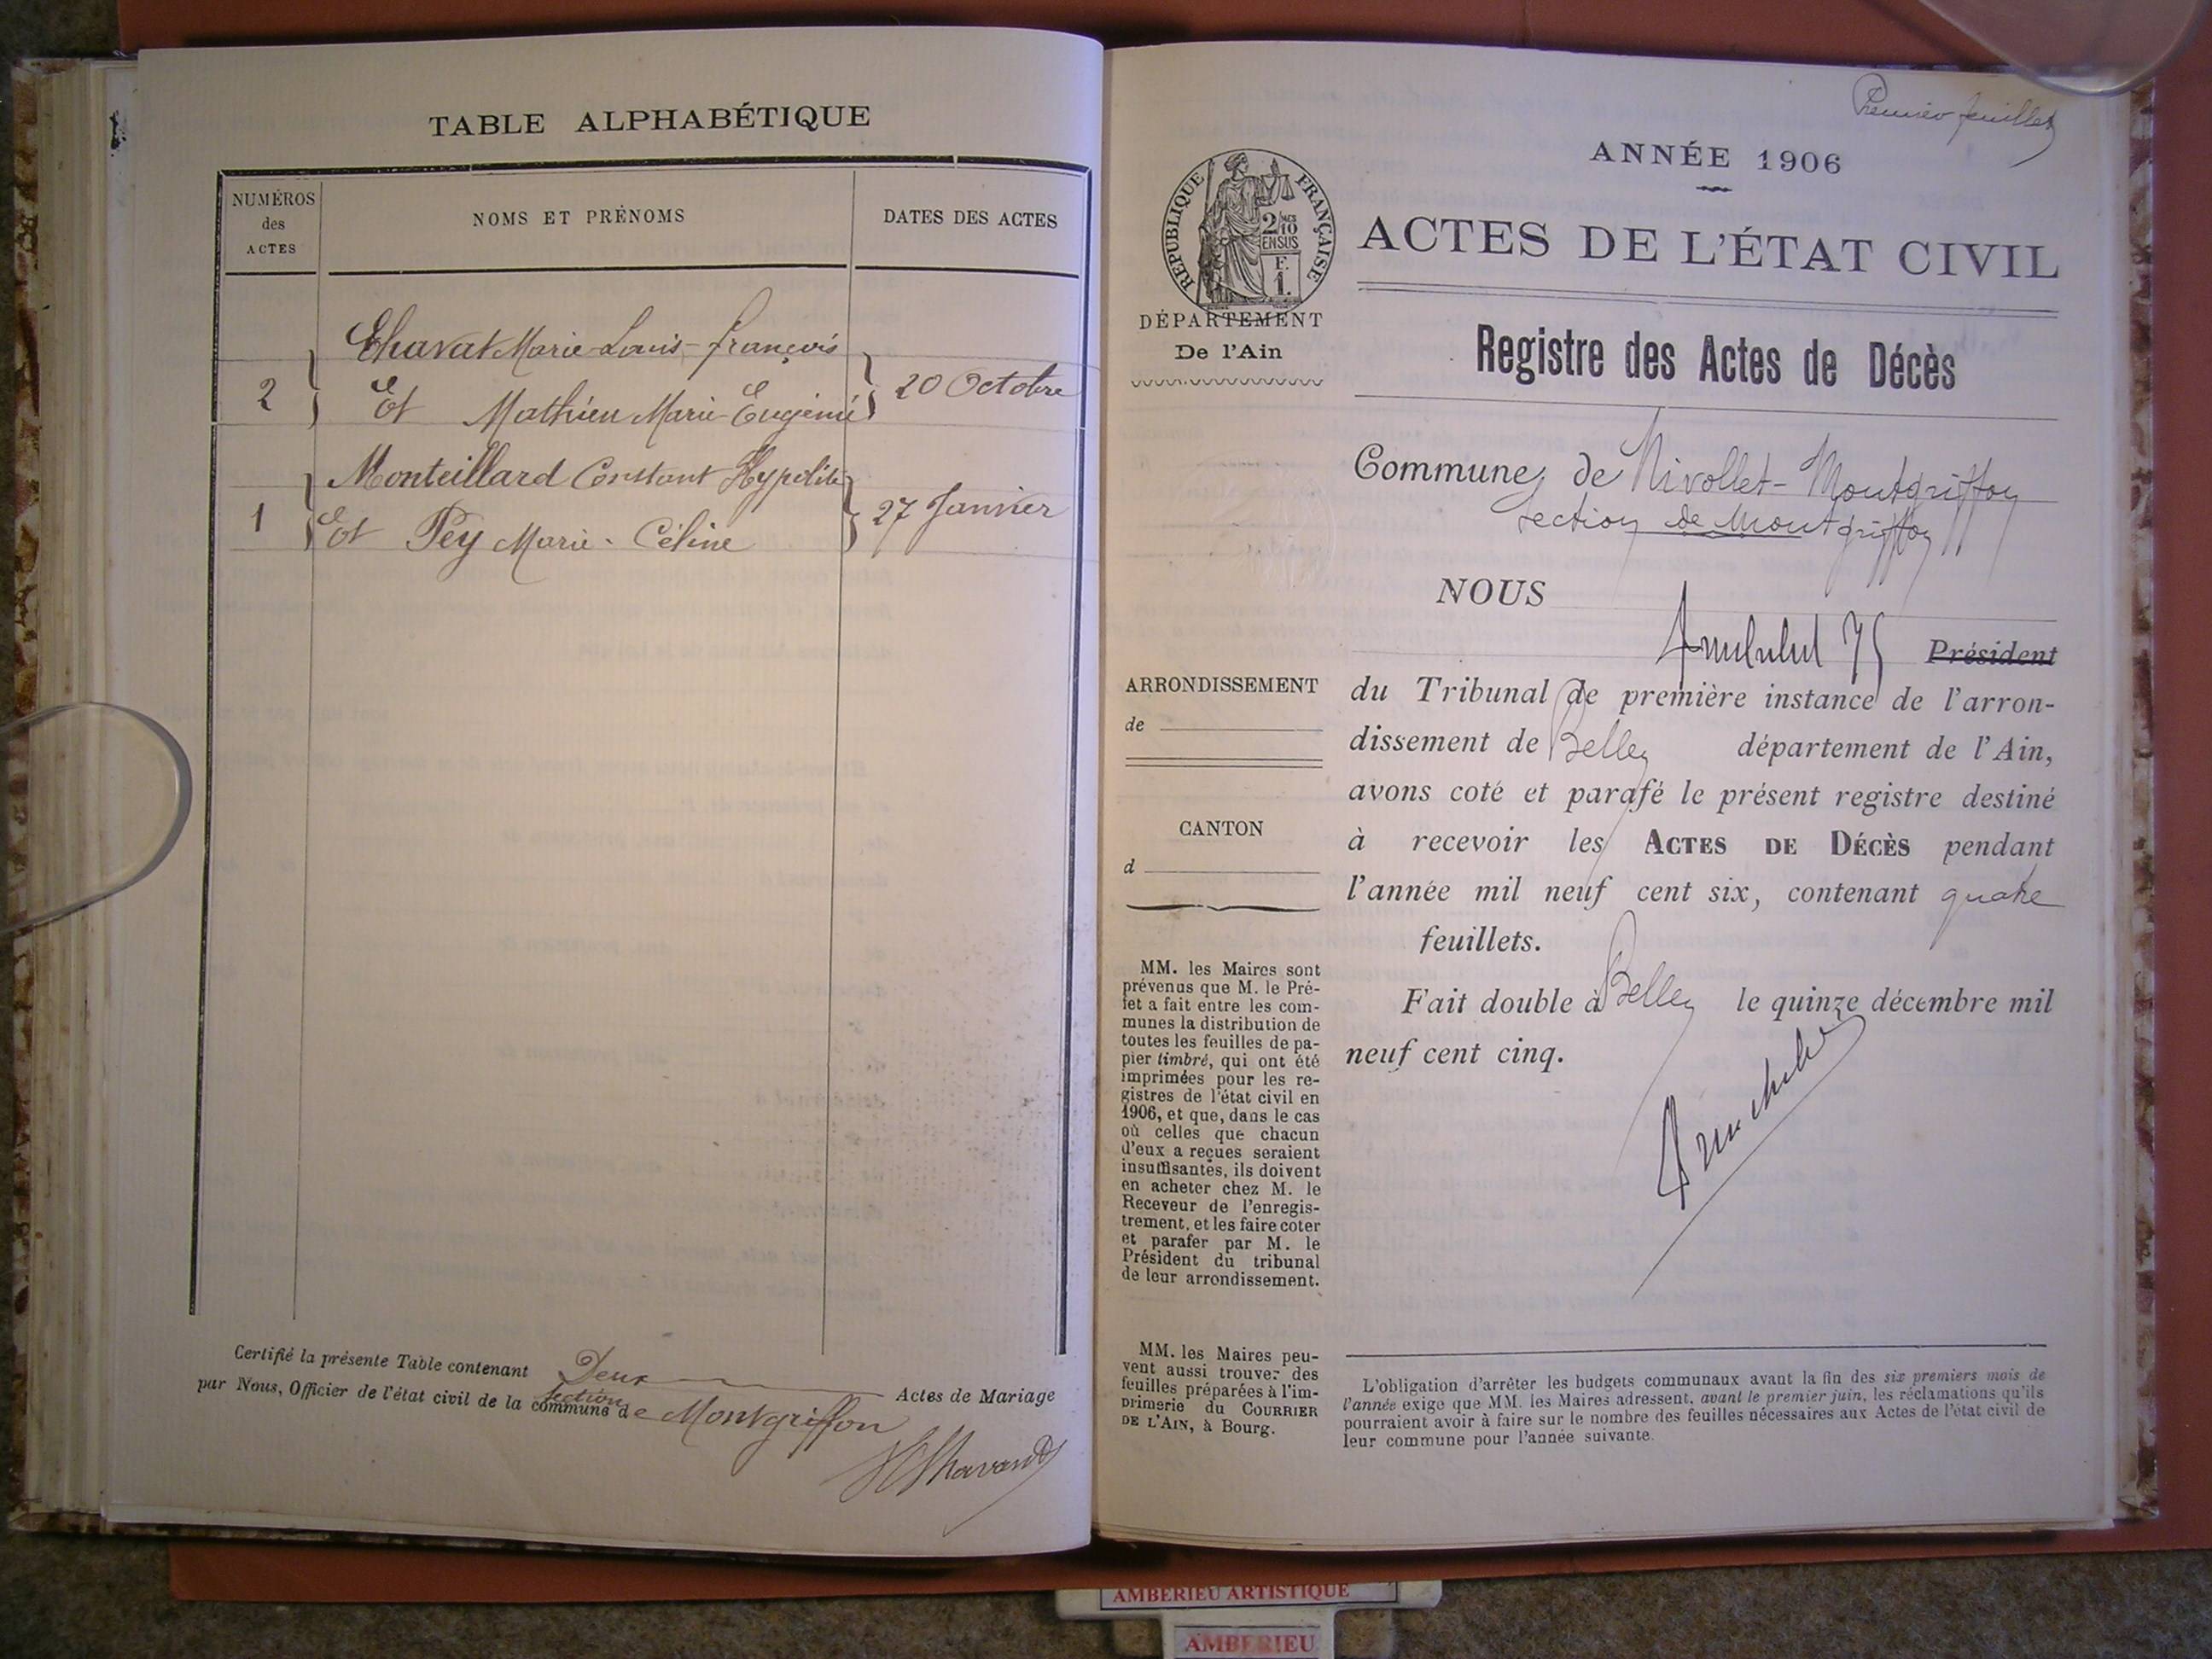 TABLE ALPHABÉTIQUE
NUMÉROS
des
ACTES
NOMS ET PRÉNOMS
DATES DES ACTES
Chavat Marie-Louis-François
2
Et Mathieu Marie-Eugénie
20 Octobre
Monteillard Constant Hypolite
1
Et Pey Marie-Céline
27 Janvier
Certifié la présente Table contenant Deux Actes de Mariage
par Nous, Officier de l'état civil de la commune de Montgriffon
section
Premier feuillet
ANNÉE 1906
RÉPUBLIQUE FRANÇAISE
2/10
EN SUS
F.
1.
ACTES DE L'ÉTAT CIVIL
DÉPARTEMENT
De l'Ain
Registre des Actes de Décès
Commune de Nivollet-Montgriffon
section de Montgriffon
NOUS
Président
ARRONDISSEMENT
de
CANTON
d
du Tribunal de première instance de l'arron-
dissement de Belley département de l'Ain,
avons coté et parafé le présent registre destiné
à recevoir les ACTES DE DÉCÈS pendant
l'année mil neuf cent six, contenant quatre
feuillets.
Fait double à Belley le quinze décembre mil
neuf cent cinq.
MM. les Maires sont
prévenus que M. le Pré-
fet a fait entre les com-
munes la distribution de
toutes les feuilles de pa-
pier timbré, qui ont été
imprimées pour les re-
gistres de l'état civil en
1906, et que, dans le cas
où celles que chacun
d'eux a reçues seraient
insuffisantes, ils doivent
en acheter chez M. le
Receveur de l'enregis-
trement, et les faire coter
et parafer par M. le
Président du tribunal
de leur arrondissement.
MM. les Maires peu-
vent aussi trouver des
feuilles préparées à l'im-
primerie du COURRIER
DE L'AIN, à Bourg.
L'obligation d'arrêter les budgets communaux avant la fin des six premiers mois de
l'année exige que MM. les Maires adressent, avant le premier juin, les réclamations qu'ils
pourraient avoir à faire sur le nombre des feuilles nécessaires aux Actes de l'état civil de
leur commune pour l'année suivante.
AMBERIEU ARTISTIQUE
AMBERIEU